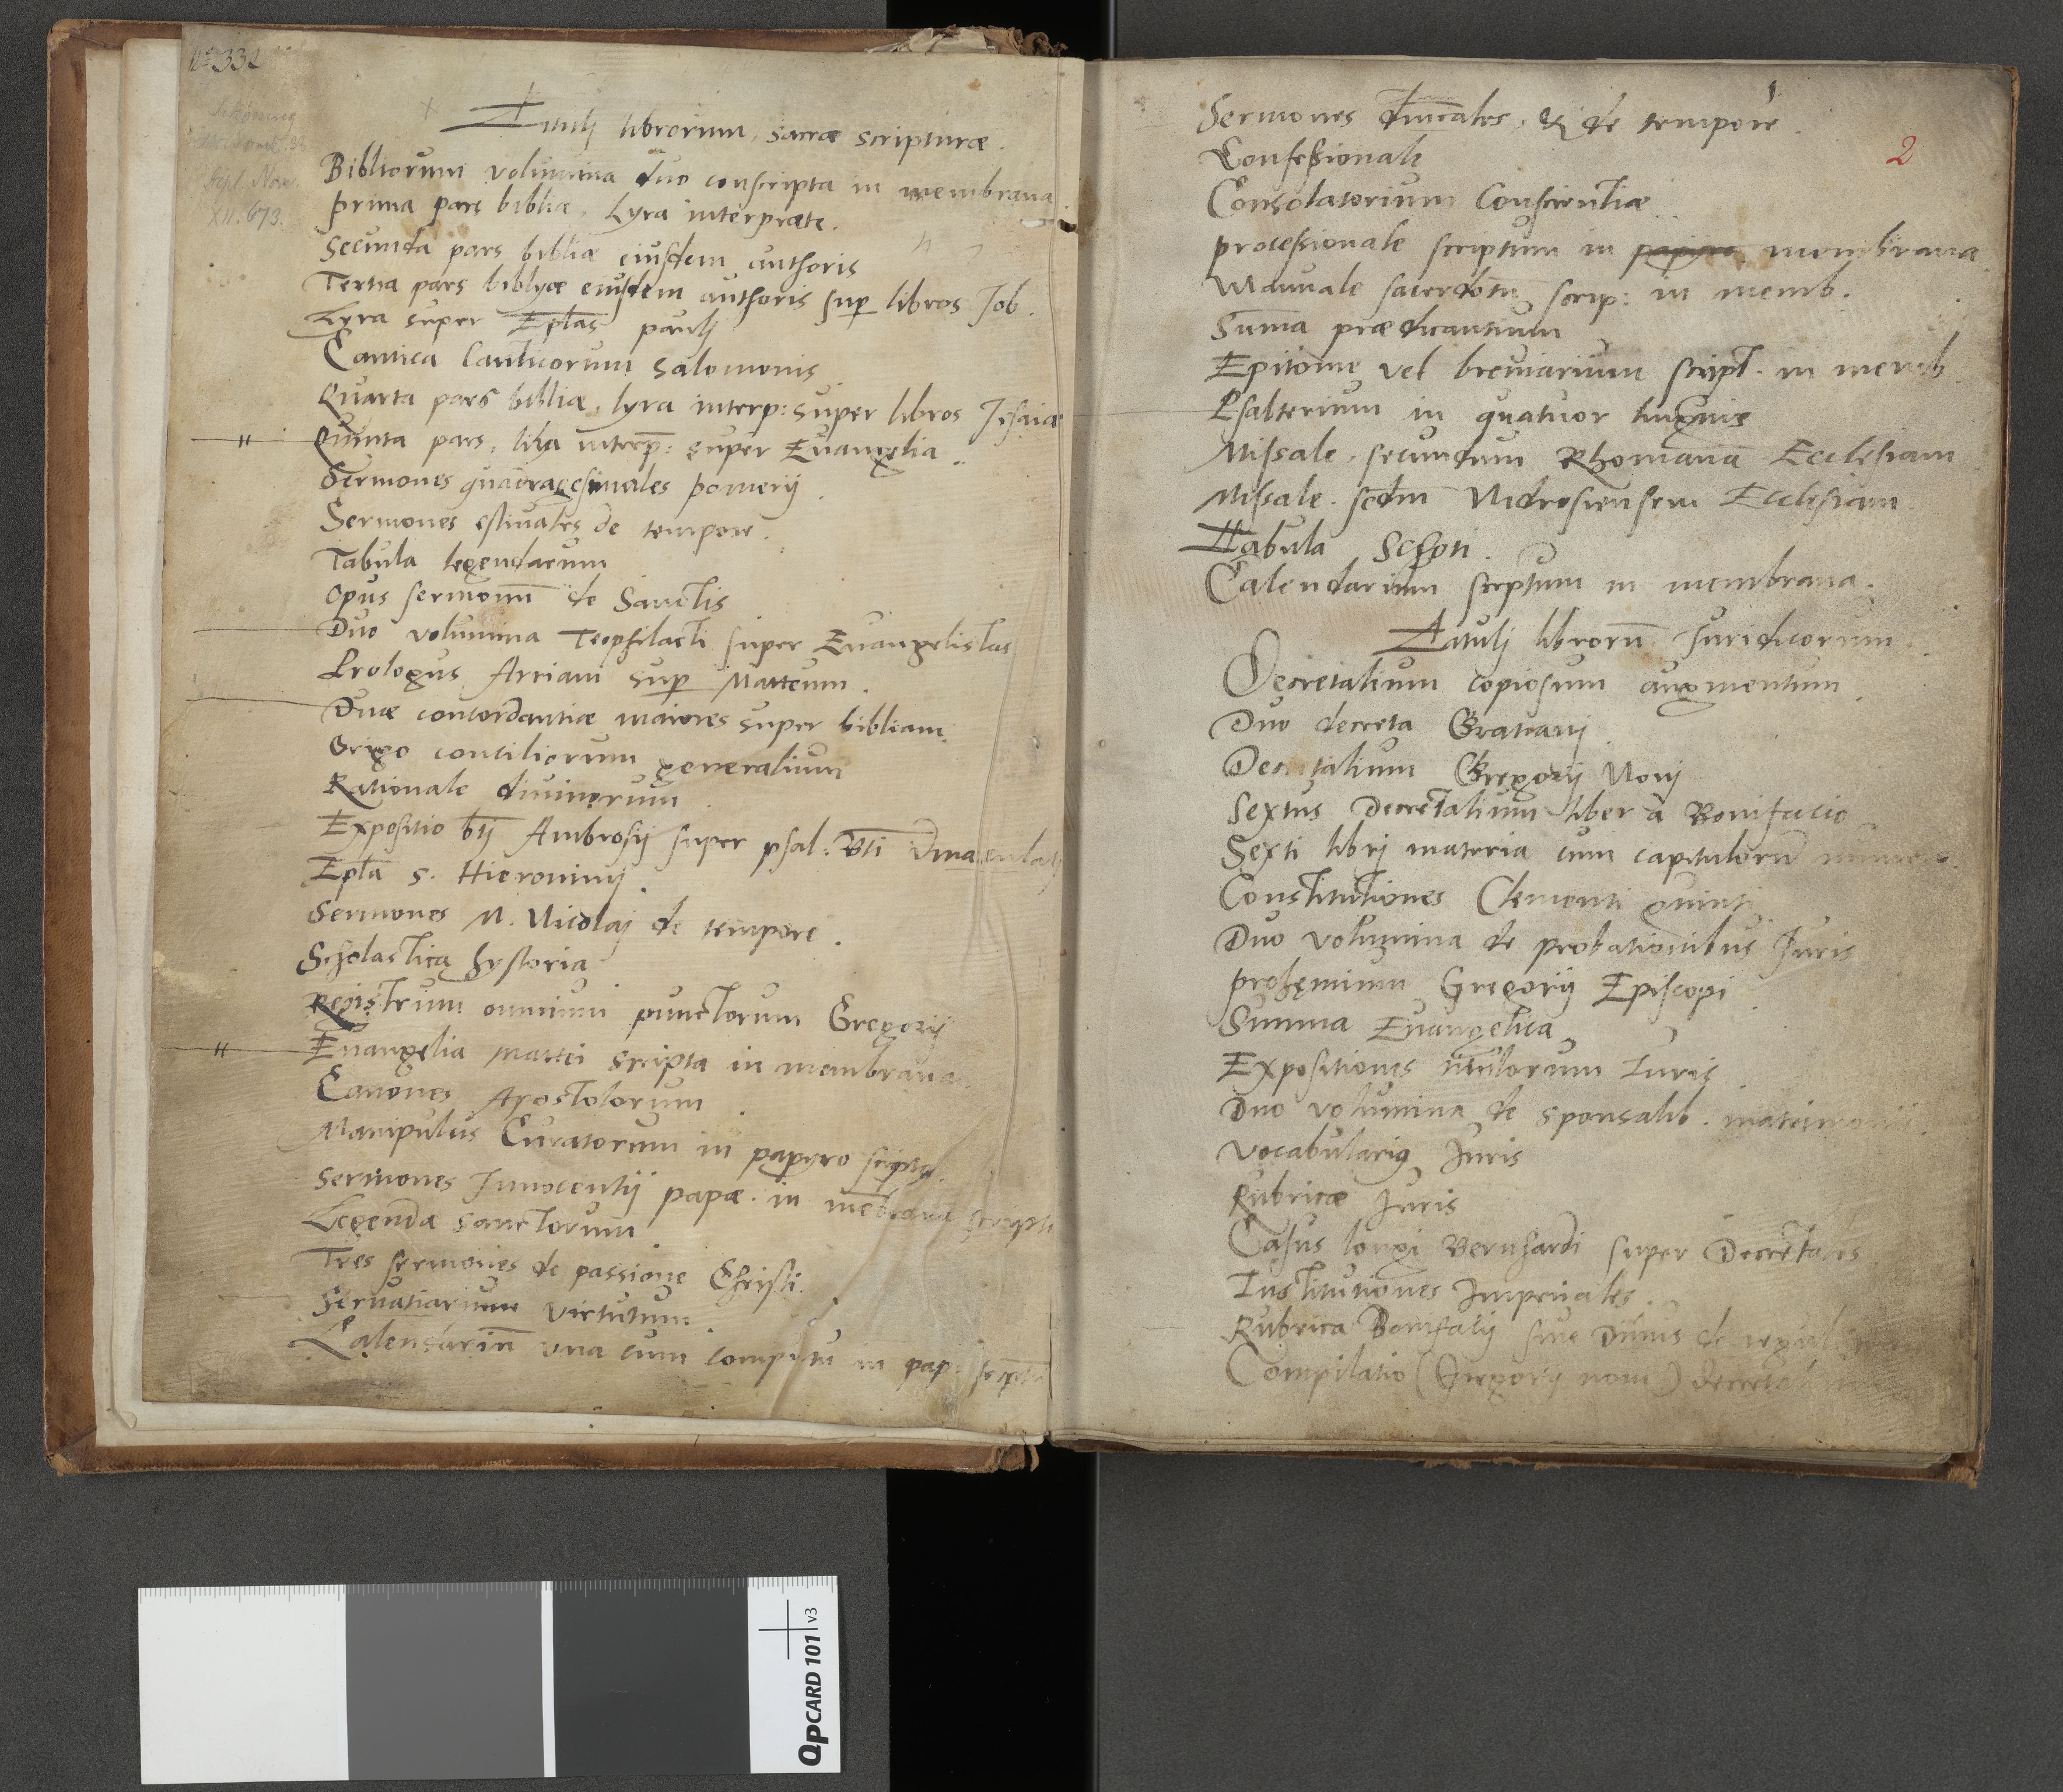 No 332
XII. 673.
Titulj librorum sacræ scripturæ.
Bibliorum volumina duo conscripta in membrana
prima pars bibliæ, Lyra interpræte.
Secunda pars bibliæ eiusdem authoris
Tertia pars biblyæ eiusdem authoris sup libros Job.
Lyra super Eplas paulj
Cantica Canticorum Salomonis
Quarta pars bibliæ, lyra interp: super libros Jsaiæ
Quinta pars, lira interp: super Euangelia.
Sermones quadragesimales pomerij.
Sermones estiuales de tempore.
Tabula legendarum
Opus sermonum de Sanctis
Duo volumina Teophilacti super Euangelistas
Prologus Arriani sup Matteum.
Duæ concordantiæ maiores super bibliam.
Origo consiliorum generalium
Rationale diuinorum.
Expositio bti Ambrosij super psal: Bti
Epla S. Hieronimj.
Sermones M. Nicolaj de tempore.
Scholastica hystoria
Registrum omnium punctorum Gregorij
Euangelia Mattei scripta in membrana
Canones Apostolorum.
Manipulus Curatorum in papyro scripta.
Sermones Innocentij papæ in mēbrana scripti
Legenda sanctorum.
Tres sermones de passione Christi.
virtutum.
Calendariū una cum computu in pap: scpti
1
Sermones dnicales, & de tempore.
2
Confessionali
Consolatorium Conscientiæ.
processionale scriptum in papyro membrana.
Manuale sacerdotū scrip: in memb.
Suma prædicantium
Epitome vel breuiarium script. in memb.
Psalterium in quatuor linguis
Missale, secundum Rhomana Ecclesiam
Missale. scdm Nidrosiensem Ecclesiam
Tabula Schoti.
Calendarium scptum in membrana.
Titulj librorū Juridicorum.
Decretalium copiosum augmentum.
Duo decreta Gratianj.
Decretalium Gregorij Nonj
Sextus Decretalium liber a Bonifacio
Sexti librj materia cum capitulorū numero.
Constitutiones Clementi quinti.
Duo volumina de probationibus Juris
prohemium Gregorij Episcopi.
Summa Euangelica
Expositiones titulorum Juris.
Duo volumina de sponsalib. matrimonii.
Vocabularius Juris
Rubricæ Juris
Casus longi Bernhardi super Decretales
Institutiones Imperiales.
Rubrica Bonifacij siue Dinus de regul.
Compilatio (Gregorij noni) decretalium
QpCARD 101 v3